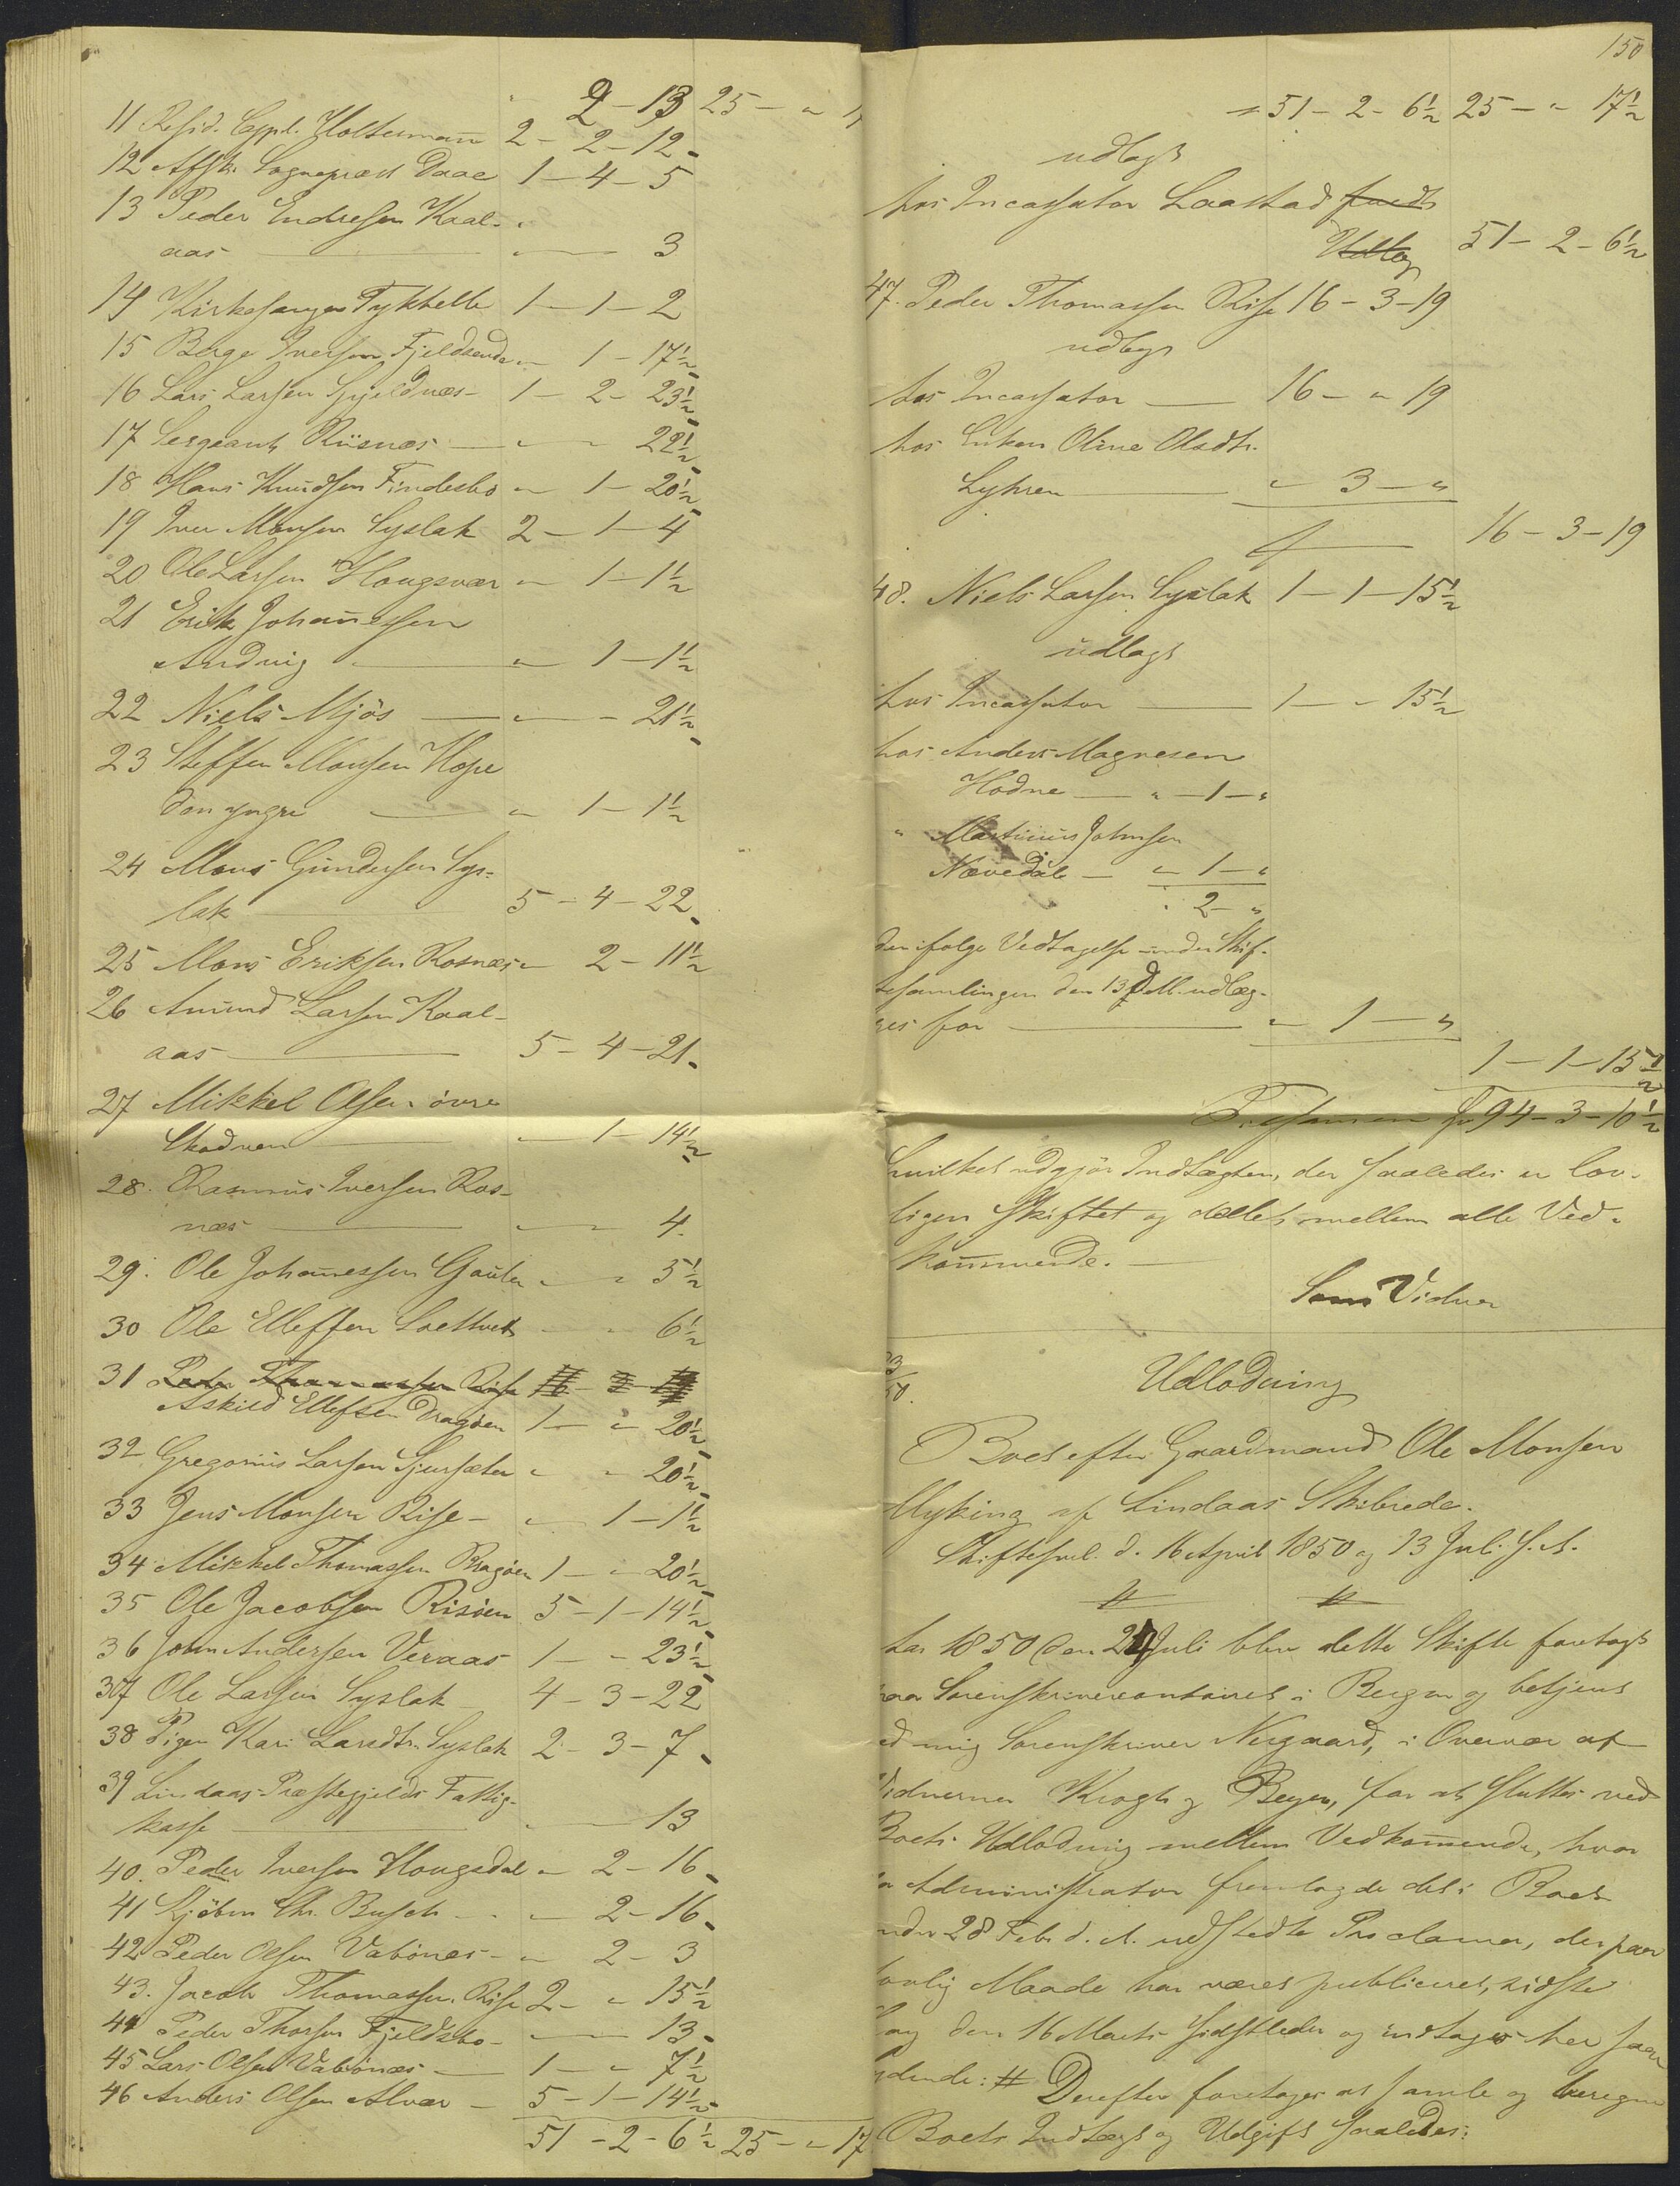 " 2 - 13 25 - " 17
11 Resid. Cappl. Holtermann 2 - 2 - 12
12 Afsk. Sognepræst Daae 1 - 4 - 5
13 Peder Endresen Kaal-
aas " - 3
14 Kirkesanger Tykhelle 1 - 1 - 2
15 Berge Iversen Fjeldsende " 1 - 17½
16 Lars Larsen Gjeldnæs 1 - 2 - 23½
17 Sergeant Risnæs " " 22½
18 Hans Knudsen Findesbø " 1 - 20½
19 Iver Monsen Syslak 2 - 1 - 4
20 Ole Larsen Hougsvær " 1 - 1½
21 Erik Johannessen
Andvig " 1 - 1½
22 Niels Mjös " - 21½
23 Steffen Monsen Hope
den yngre " 1 - 1½
24 Mons Gundersen Sys-
lak 5 - 4 - 22
25 Mons Eriksen Rosnæs " 2 - 11½
26 Amund Larsen Kaal-
aas 5 - 4 - 21
27 Mikkel Olsen övre
Skodven " 1 - 14½
28. Rasmus Iversen Ros-
næs " " 4.
29. Ole Johannessen Gaulen " " 5½
30 Ole Ellefsen " 6½
31 Peder Thomassen Rise 16 - 3 - 19
Askild Ellefsen Dragøen 1 - " 20½
32 Gregorius Larsen Sjursæter " " 20½
33 Jens Monsen Rise - " 1 - 1½
34 Mikkel Thomassen Dragøen 1 - " 20½
35 Ole Jacobsen Risøen 5 - 1 - 14½
36 John Andersen Veraas 1 - " 23½
37 Ole Larsen Syslak 4 - 3 - 22
38 Pigen Kari Larsdtr. Syslak 2 - 3 - 7
39 Lindaas Præstegjelds Fattig-
kasse " 13
40. Peder Iversen Hougsdal " 2 - 16
41 Kjöbm Chr. Busch " 2 - 16
42 Peder Olsen Vabönæs " 2 - 3
43. Jacob Thomassen Rise 2 - " 15½
44 Peder Thorsen Fjeldsbø - " 13
45 Lars Olsen Vabönæs 1 - " 7½
46 Anders Olsen Alvær - 5 - 1 - 14½
51 - 2 - 6½ 25 - " 17
150
51 - 2 - 6½ 25 - " 17½
udlagt
hos Incassator Laastad
Udlæg 51 - 2 - 6½
47. Peder Thomassen Rise 16 - 3 - 19
udlagt
hos Incassator 16 - " 19
hos Enken Oline Olsdtr.
Lyhren " 3 - "
16 - 3 - 19
48. Niels Larsen Syslak 1 - 1 - 15½
udlagt
hos Incassator 1 - " 15½
hos Anders Magnesen
Hodne " - 1 - "
" Martinus Johnsen
Nævedale " 1 - "
" 2 - "
der ifølge Vedtagelse under Skif-
tesamlingen den 13 d. M. udlæg-
ges for " 1 - "
1 - 1 - 15½
Tilsammen 94 - 3 - 10½
hvilket udgjör Indtægten, der saaledes er lov-
ligen skiftet og deelet mellem alle Ved-
kommende.
Som Vidner
23/
50. Udlodning
Boet efter Gaardmand Ole Monsen
Myking af Lindaas Skibrede.
d. 16 April 1850 og 13 Juli s. A.
# #
Aar 1850 den 24 Juli blev dette Skifte foretaget
paa Sorenskrivercontoiret i Bergen og betjent
ved mig Sorenskriver Nergaard, i Overvær af
Vidnerne Krogh og Beyer, for at sluttes ved
Boets Udlodning mellem Vedkommende, hvor
da Administrator fremlagde det i Boet
under 28 Febr d. A. udstedte Proclama, der paa
lovlig Maade har været publiceret, sidste
Gang den 16 Marts sidstleden og indtages her saa
lydende: # Derefter foretages at samle og beregne
Boets Indtægt og Udgift saaledes: